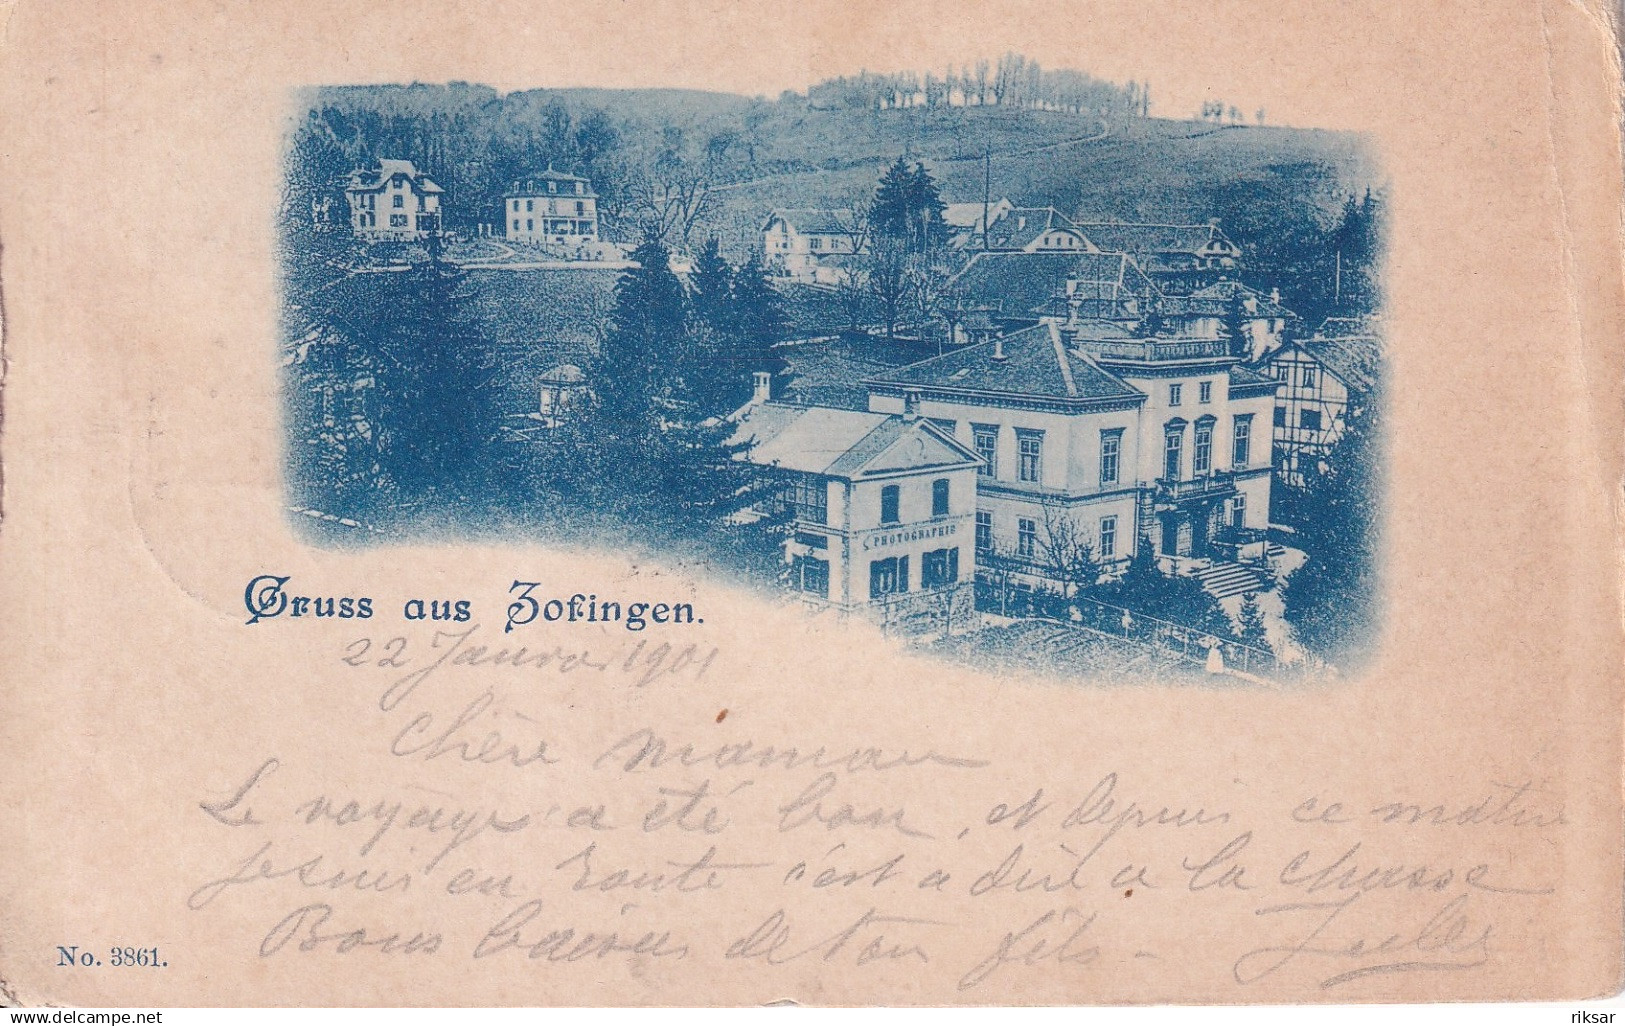 PHOTOGRAPHIE
Gruss aus Zofingen.
22 Janvier 1901
Chère maman
Le voyage a été bon, et depuis ce matin
je suis en route c'est a dire a la chasse
Bons baisers de ton fils - Jules
No. 3861.
delcampe.net
riksar